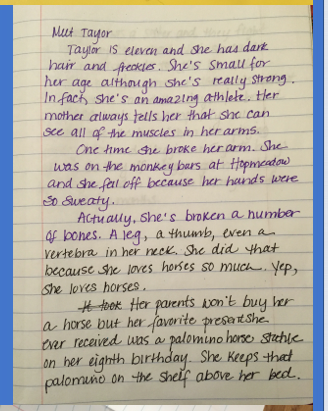 Meet Taylor
Taylor is eleven and she has dark
hair and freckles. She's small for
her age although she's really strong.
In fact, she's an amazing athlete. Her
mother always tells her that she can
see all of the muscles in her arms.
One time she broke her arm. She
was on the monkey bars at Hopmeadow
and she fell off because her hands were
so sweaty.
Actually, she's broken a number
of bones. A leg, a thumb, even a
vertebra in her neck. She did that
because she loves horses so much. Yep,
she loves horses.
It took Her parents won't buy her
a horse but her favorite present she
ever received was a palomino horse statue
on her eighth birthday. She keeps that
palomino on the shelf above her bed.